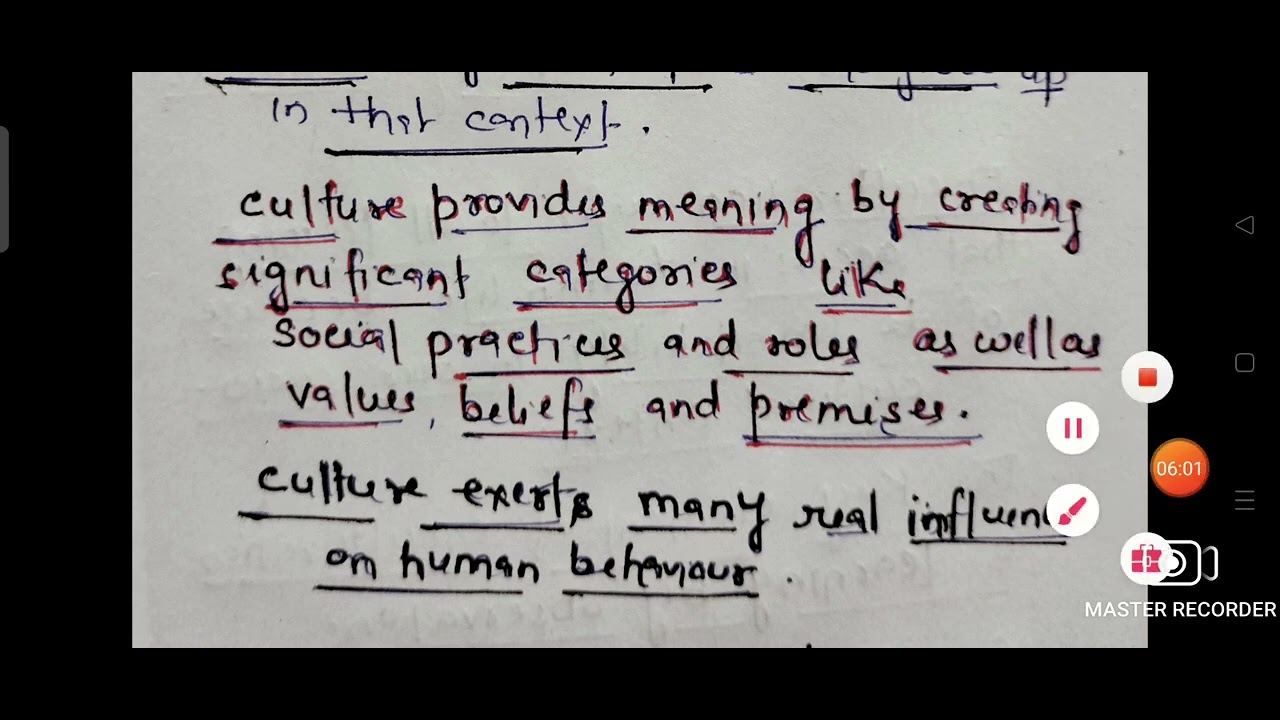 up
in that context.
culture provides meaning by creating
significant categories like
social practices and roles as well as
values, beliefs and premises.
culture exerts many real influen
on human behaviour.
06:01
MASTER RECORDER